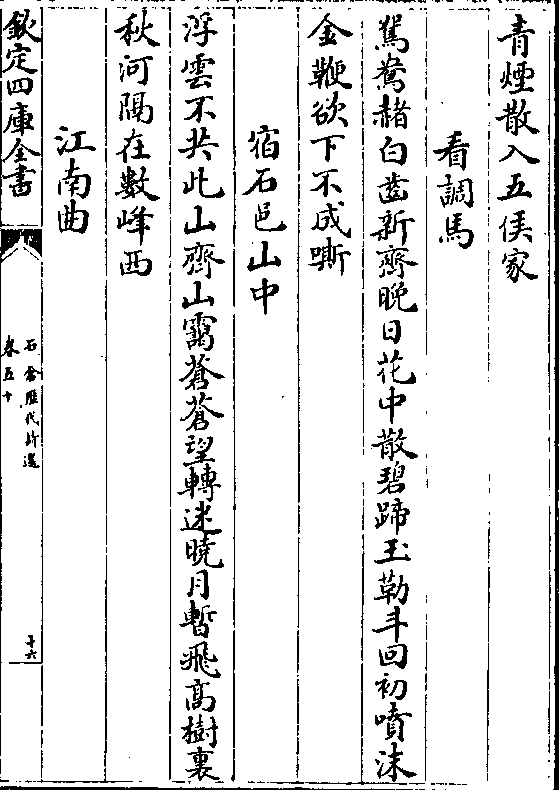 青煙散入五侯家
看調馬
鴛鴦赭白齒新齊晚日花中散碧蹄玉勒斗回初噴沫
金鞭欲下不成嘶
宿石邑山中
浮雲不共此山齊山靄蒼蒼望轉迷曉月暫飛高樹裏
秋河隔在數峰西
江南曲
欽定四庫全書
石倉歷代詩選
卷五十
十六